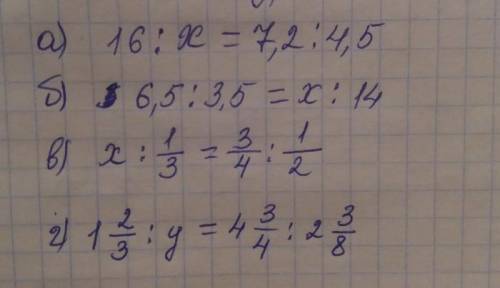 а) 16 : x = 7,2 : 4,5
б) 6,5 : 3,5 = x : 14
в) x : 1/3 = 3/4 : 1/2
г) 1 2/3 : y = 4 3/4 : 2 3/8